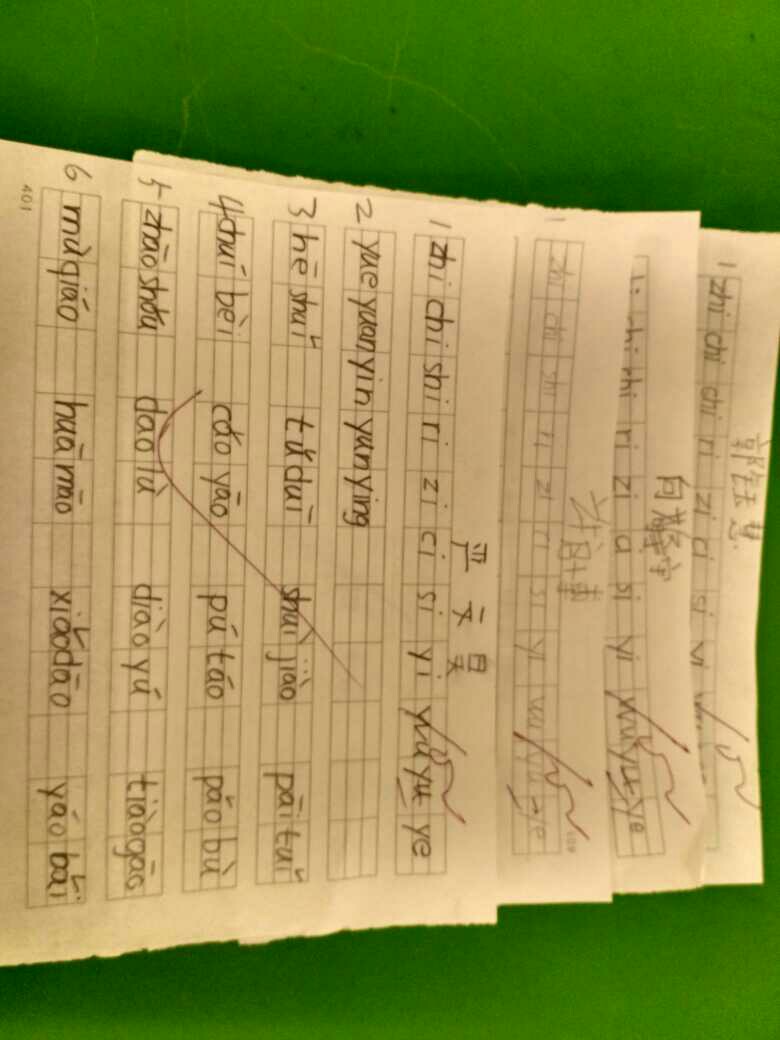 1 zhi chi chi ri zi ci si yi
chi shi ri zi ci si yi wu yu ye
1 zhi chi shi ri zi ci si yi wu yu ye
严文昊
1 zhi chi shi ri zi ci si yi wu yu ye
2 yue yuan yin yun ying
3 hē shuǐ tǔ duī shuì jiào pāi tuǐ
4 chuí bèi cǎo yào pú táo pǎo bù
5 zhāo shǒu dào lù diào yú tiào gāo
6 mù qiáo huā māo xiǎo dāo yáo bǎi
401